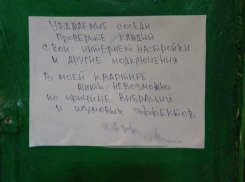 Уважаемые соседи
проверьте каждый
свои интернет настройки
и другие подключения
в моей квартире
жить невозможно
по причине вибраций
и шумовых эффектов